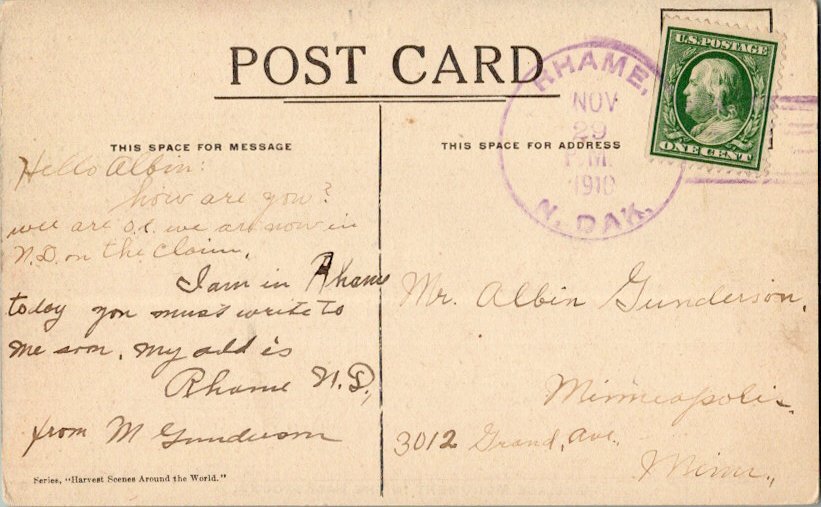 POST CARD
THIS SPACE FOR MESSAGE
Hello Albin:
how are you?
wee are o.k. we are now in
N.D. on the claim.
I am in Rhame
today you must write to
me soon. my add is
Rhame N.D.,
from M Gunderson
Series, "Harvest Scenes Around the World."
THIS SPACE FOR ADDRESS
RHAME,
NOV
29
P.M.
1910
N. DAK.
U.S. POSTAGE
ONE CENT
Mr. Albin Gunderson,
Minneapolis.
3012 Grand, ave.
Minn.,